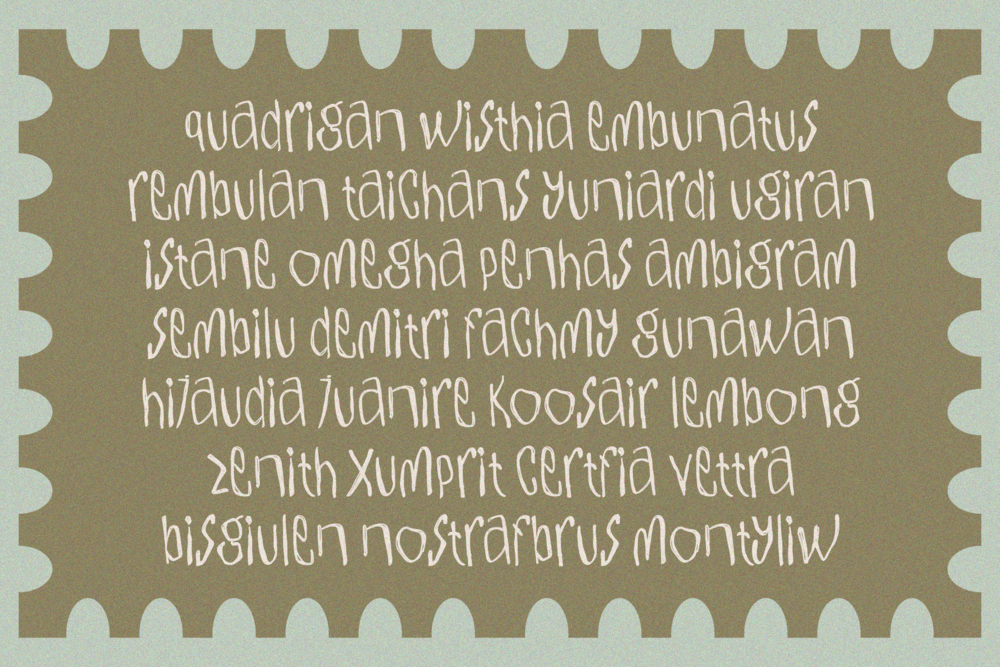 quadrigan wisthia embunatus
rembulan taichans yuniardi ugiran
istane omegha penhas ambigram
sembilu demitri fachmy gunawan
hijaudia juanire koosair lembong
zenith xumprit certfia vettra
bisgiulen nostrafbrus montyliw